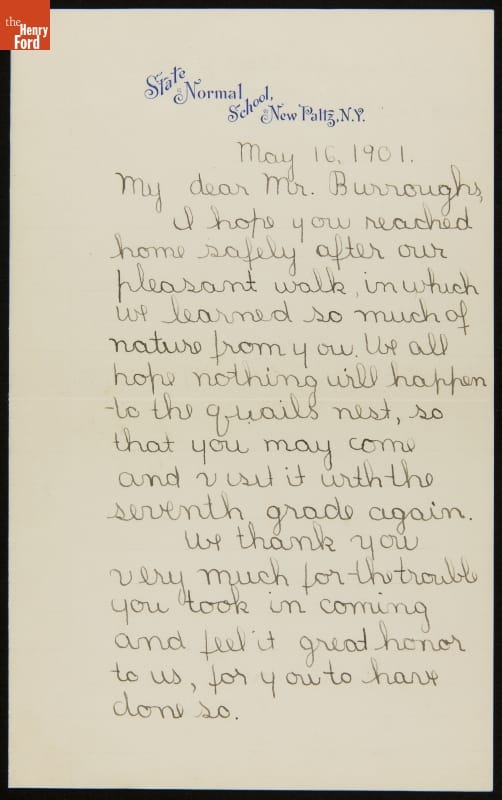 the
Henry
Ford
State
Normal
School,
New Paltz, N.Y.
May 16, 1901.
My dear Mr. Burroughs,
I hope you reached
home safely after our
pleasant walk, in which
we learned so much of
nature from you. We all
hope nothing will happen
to the quails nest, so
that you may come
and visit it with the
seventh grade again.
We thank you
very much for the trouble
you took in coming
and feel it great honor
to us, for you to have
done so.